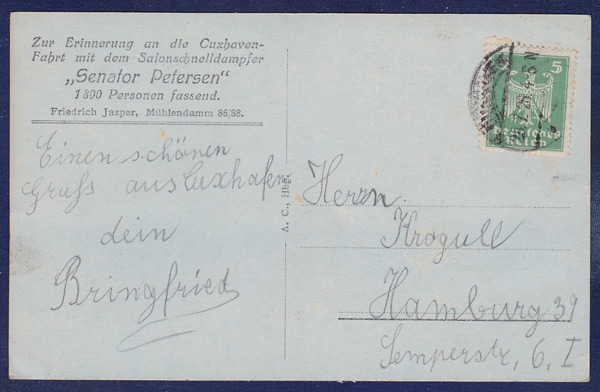 Zur Erinnerung an die Cuxhaven-
Fahrt mit dem Salonschnelldampfer
„Senator Petersen“
1800 Personen fassend.
Friedrich Jasper, Mühlendamm 86/88.
Einen schönen
Gruß aus Cuxhafen
dein
Bringfried
A. C., Hbg.
5
Deutsches
Reich
Herrn
Krogull
Hamburg 39
Semperstr. 6, I